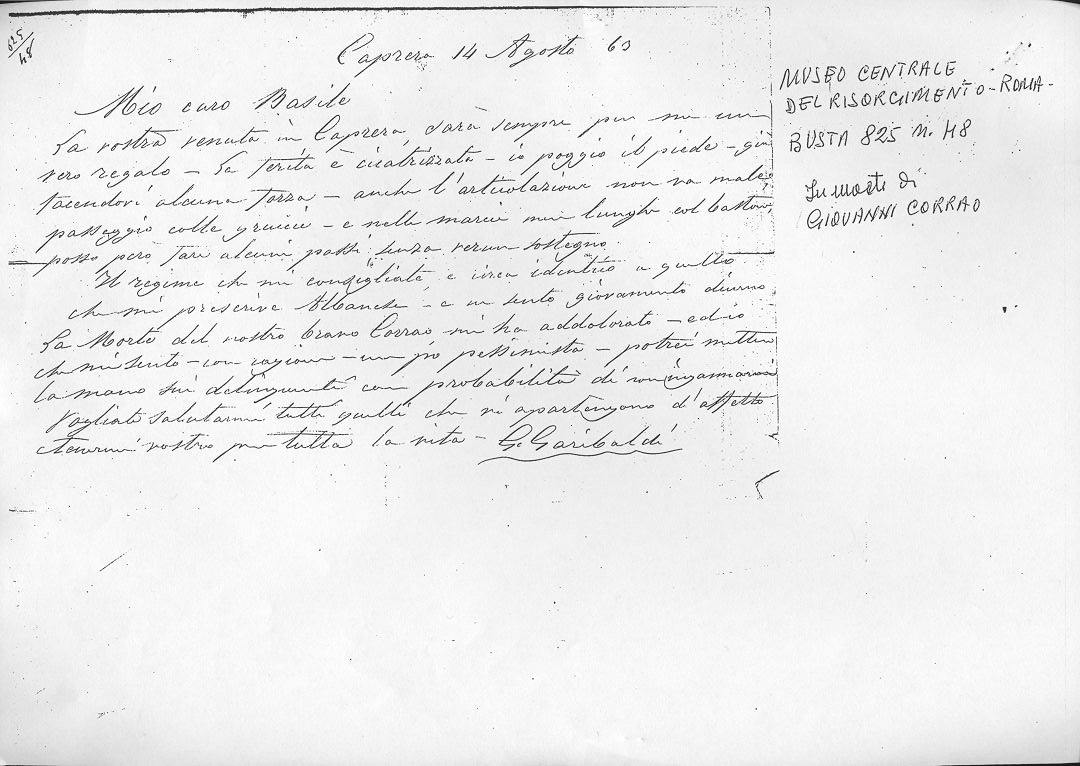 825/48
Caprera 14 Agosto 63
Mio caro Basile
La vostra venuta in Caprera, sarà sempre per me un
vero regalo – La ferita è cicatrizzata – io poggio il piede – già
facendovi alcuna forza – anche l'articolazione non va male;
passeggio colle gruccie – e nelle marcie men lunghe col bastone,
posso però fare alcuni passi senza verun sostegno.
Il regime che mi consigliate, è circa identico a quello
che mi prescrive Albanese – e ne sento giovamento
La Morte del nostro bravo Corrao mi ha addolorato – ed io
che mi sento – con ragione – un po' pessimista – potrei mettere
la mano sui delinquenti con probabilità di non ingannarmi
Vogliate salutarmi tutti quelli che vi apartengono d'affetto
e tenermi vostro per tutta la vita – G. Garibaldi
MUSEO CENTRALE
DEL RISORGIMENTO - ROMA -
BUSTA 825 N. 48
In morte di
GIOVANNI CORRAO